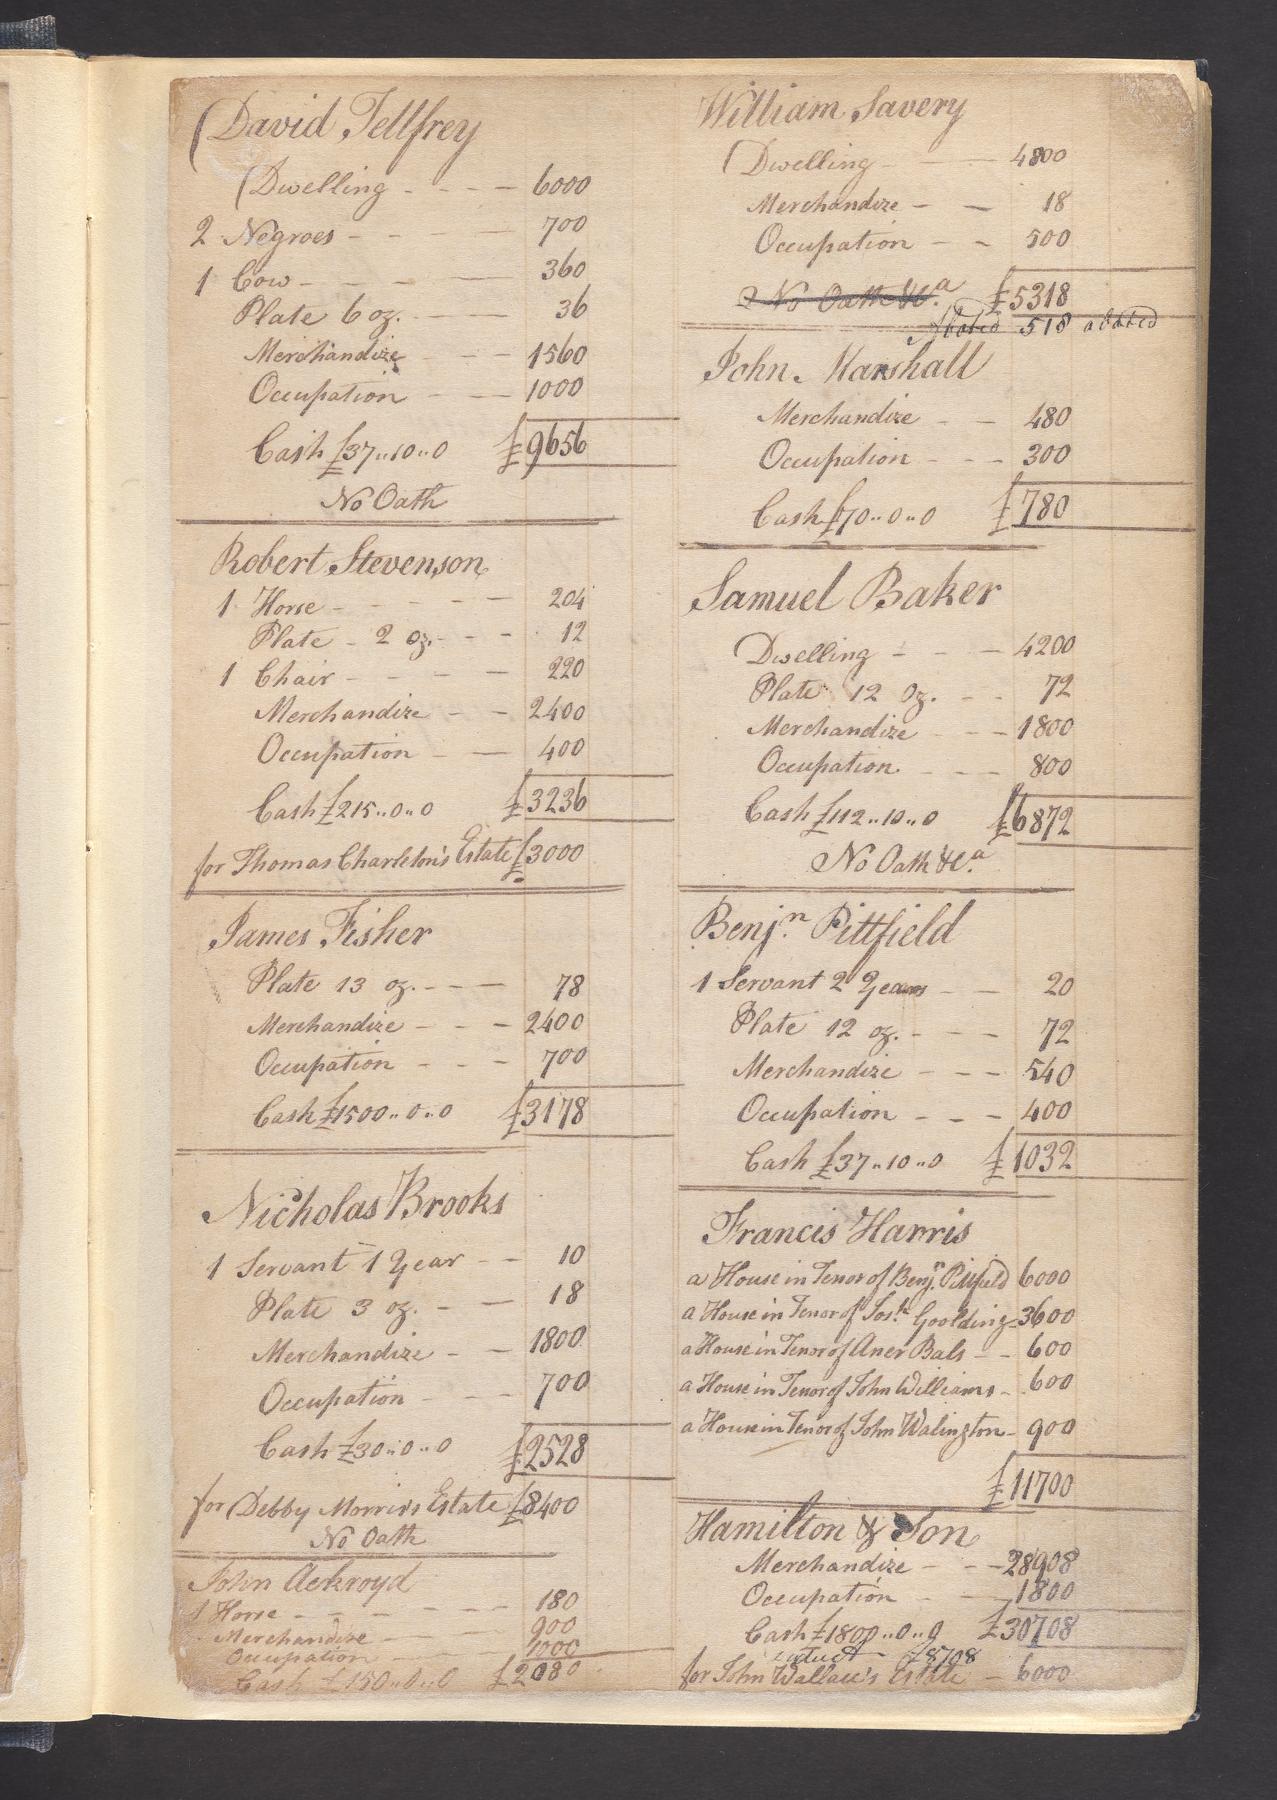 David Tellfrey
Dwelling - - - - 6000
2 Negroes - - - - 700
1 Cow - - - - 360
Plate 6 oz. - - 36
Merchandize - - - 1560
Occupation - - 1000
Cash £37..10..0 £9656
No Oath
Robert Stevenson
1 Horse - - - - - 204
Plate - 2 oz. - - - 12
1 Chair - - - - - 220
Merchandize - - 2400
Occupation - - 400
Cash £215..0..0 £3236
for Thomas Charleton's Estate £3000
James Fisher
Plate 13 oz. - - - 78
Merchandize - - - 2400
Occupation - - - 700
Cash £1500..0..0 £3178
Nicholas Brooks
1 Servant 1 Year - - 10
Plate 3 oz. - - 18
Merchandize - - 1800
Occupation - - - 700
Cash £30..0..0 £2528
for Debby Morris's Estate £8400
No Oath
John Ackroyd
1 Horse - - - - - - 180
Merchandize - - - 900
Occupation - - 1000
Cash £150..0..0 £2080
William Savery
Dwelling - - - 4800
Merchandize - - 18
Occupation - - 500
No Oath &c.a £5318
Abated 518 abated
John Marshall
Merchandize - - 480
Occupation - - - 300
Cash £70..0..0 £780
Samuel Baker
Dwelling - - - 4200
Plate 12 Oz. - - 72
Merchandize - - - 1800
Occupation - - - 800
Cash £112..10..0 £6872
No Oath &c.a
Benj.n Pittfield
1 Servant 2 Years - - 20
Plate 12 oz. - - - 72
Merchandize - - - 540
Occupation - - - 400
Cash £37..10..0 £1032
Francis Harris
a House in Tenor of Benj.n Pitfield 6000
a House in Tenor of Jos.h Goolding - 3600
a House in Tenor of Aner Bals - - 600
a House in Tenor of John Williams - 600
a House in Tenor of John Walington - 900
£11700
Hamilton & Son
Merchandize - - - 28908
Occupation - - 1800
Cash £1800..0..0 £30708
£8708
for John Wallace's Estate - 6000